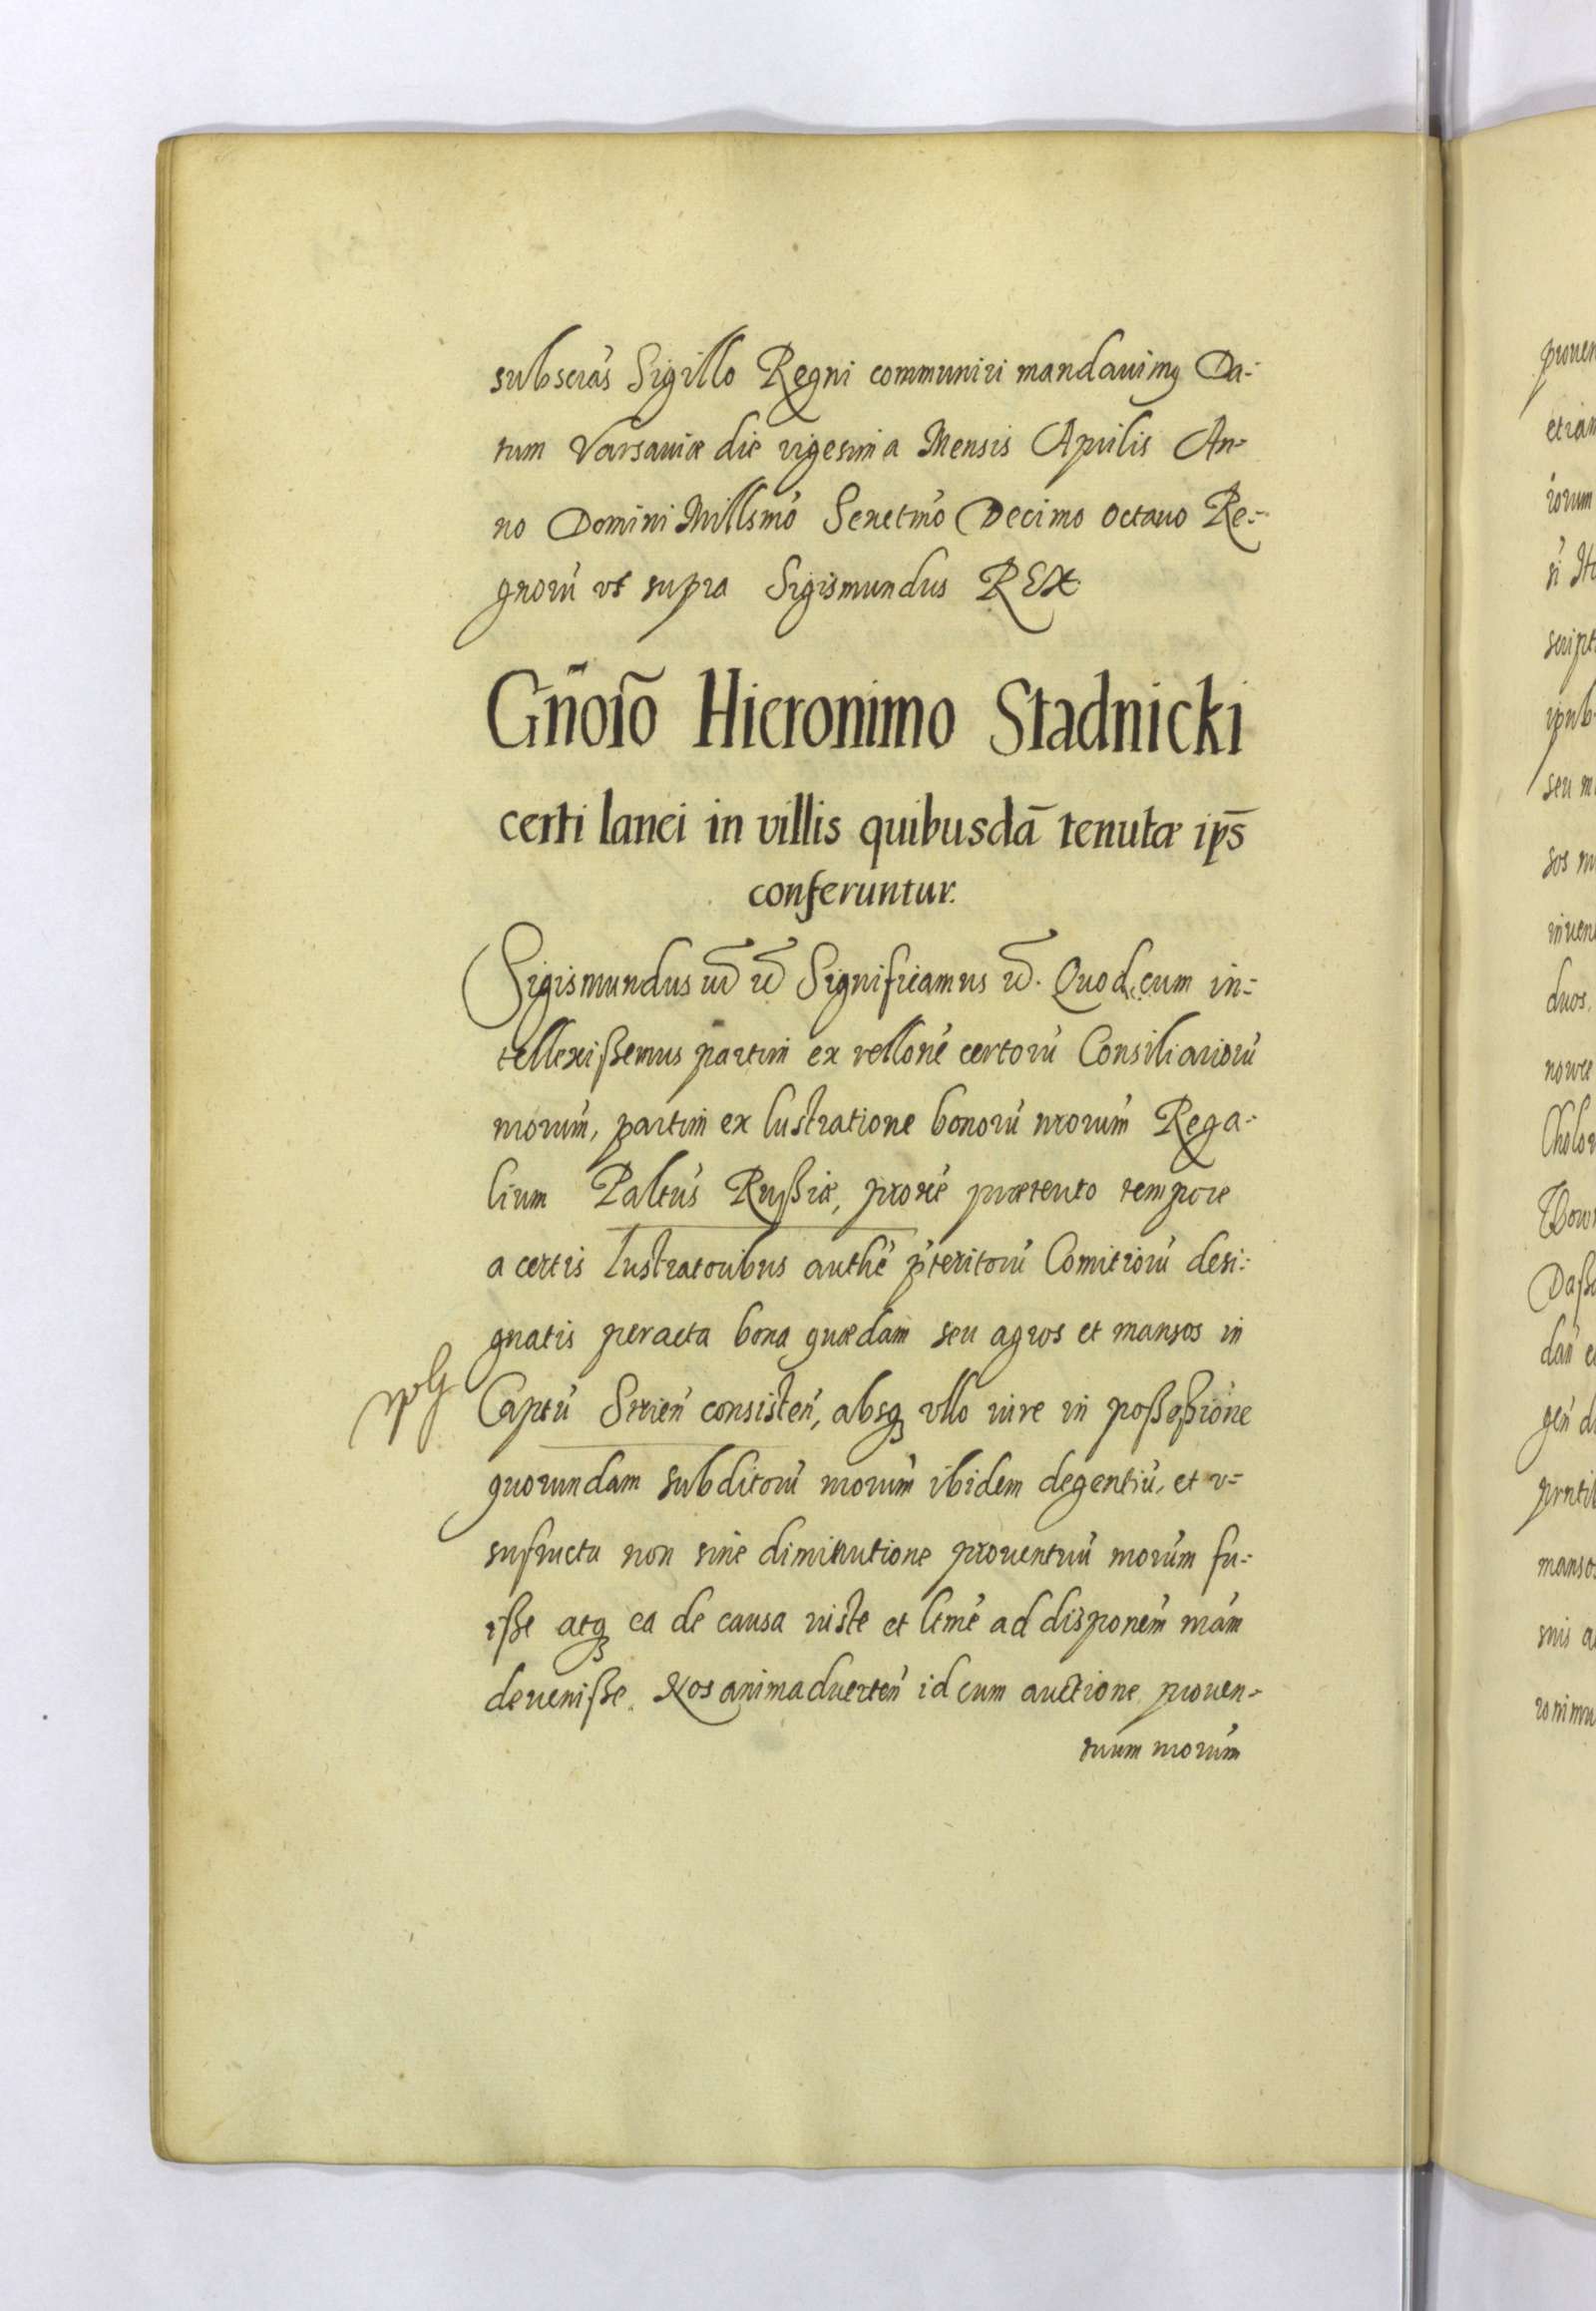 subscrās Sigillo Regni communiri mandauimꝰ Da-
tum Varsauiæ die vigesima Mensis Aprilis An-
no Domini Millsmō Sexctmō Decimo octauo Re-
gnorū vt supra Sigismundus REX
Gn̄oro Hieronimo Stadnicki
certi lanei in villis quibusdā tenutæ ips̄
conferuntur.
Sigismundus Significamus Quod cum in-
tellexißemus partim ex rellonē certorū Consiliariorū
nrorum, partim ex lustratione bonorū nrorum Rega-
lium Paltūs Rußiæ, proxē prætento tempore
a certis lustratoribus authē pteritorū Comitiorū desi-
gnatis peracta bona quædam seu agros et mansos in
Captū Strień consisteń, absqꝫ vllo iure in poßeßione
quorundam subditorū nrorum ibidem degentiū, et v-
sufructu non sine diminutione prouentuū nrorum fu-
iße atqꝫ ea de causa iuste et ltmē ad disponem nrām
deueniße. Nos animaduerteń id cum auctione prouen-
tuum nrorum
prouen
etiam
script
seu m
sos m
inuen
duos.
nowce
mansos
suis a
ronimu